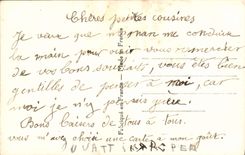 Chères petites cousines
Je veux que maman me conduise
la main, pour venir vous remercier
de vos bons souhaits, vous êtes bien
gentilles de penser à moi, car
moi je n'y pensais guère.
Bons baisers de tous à tous.
vous m'avez choisi une carte à mon goût.